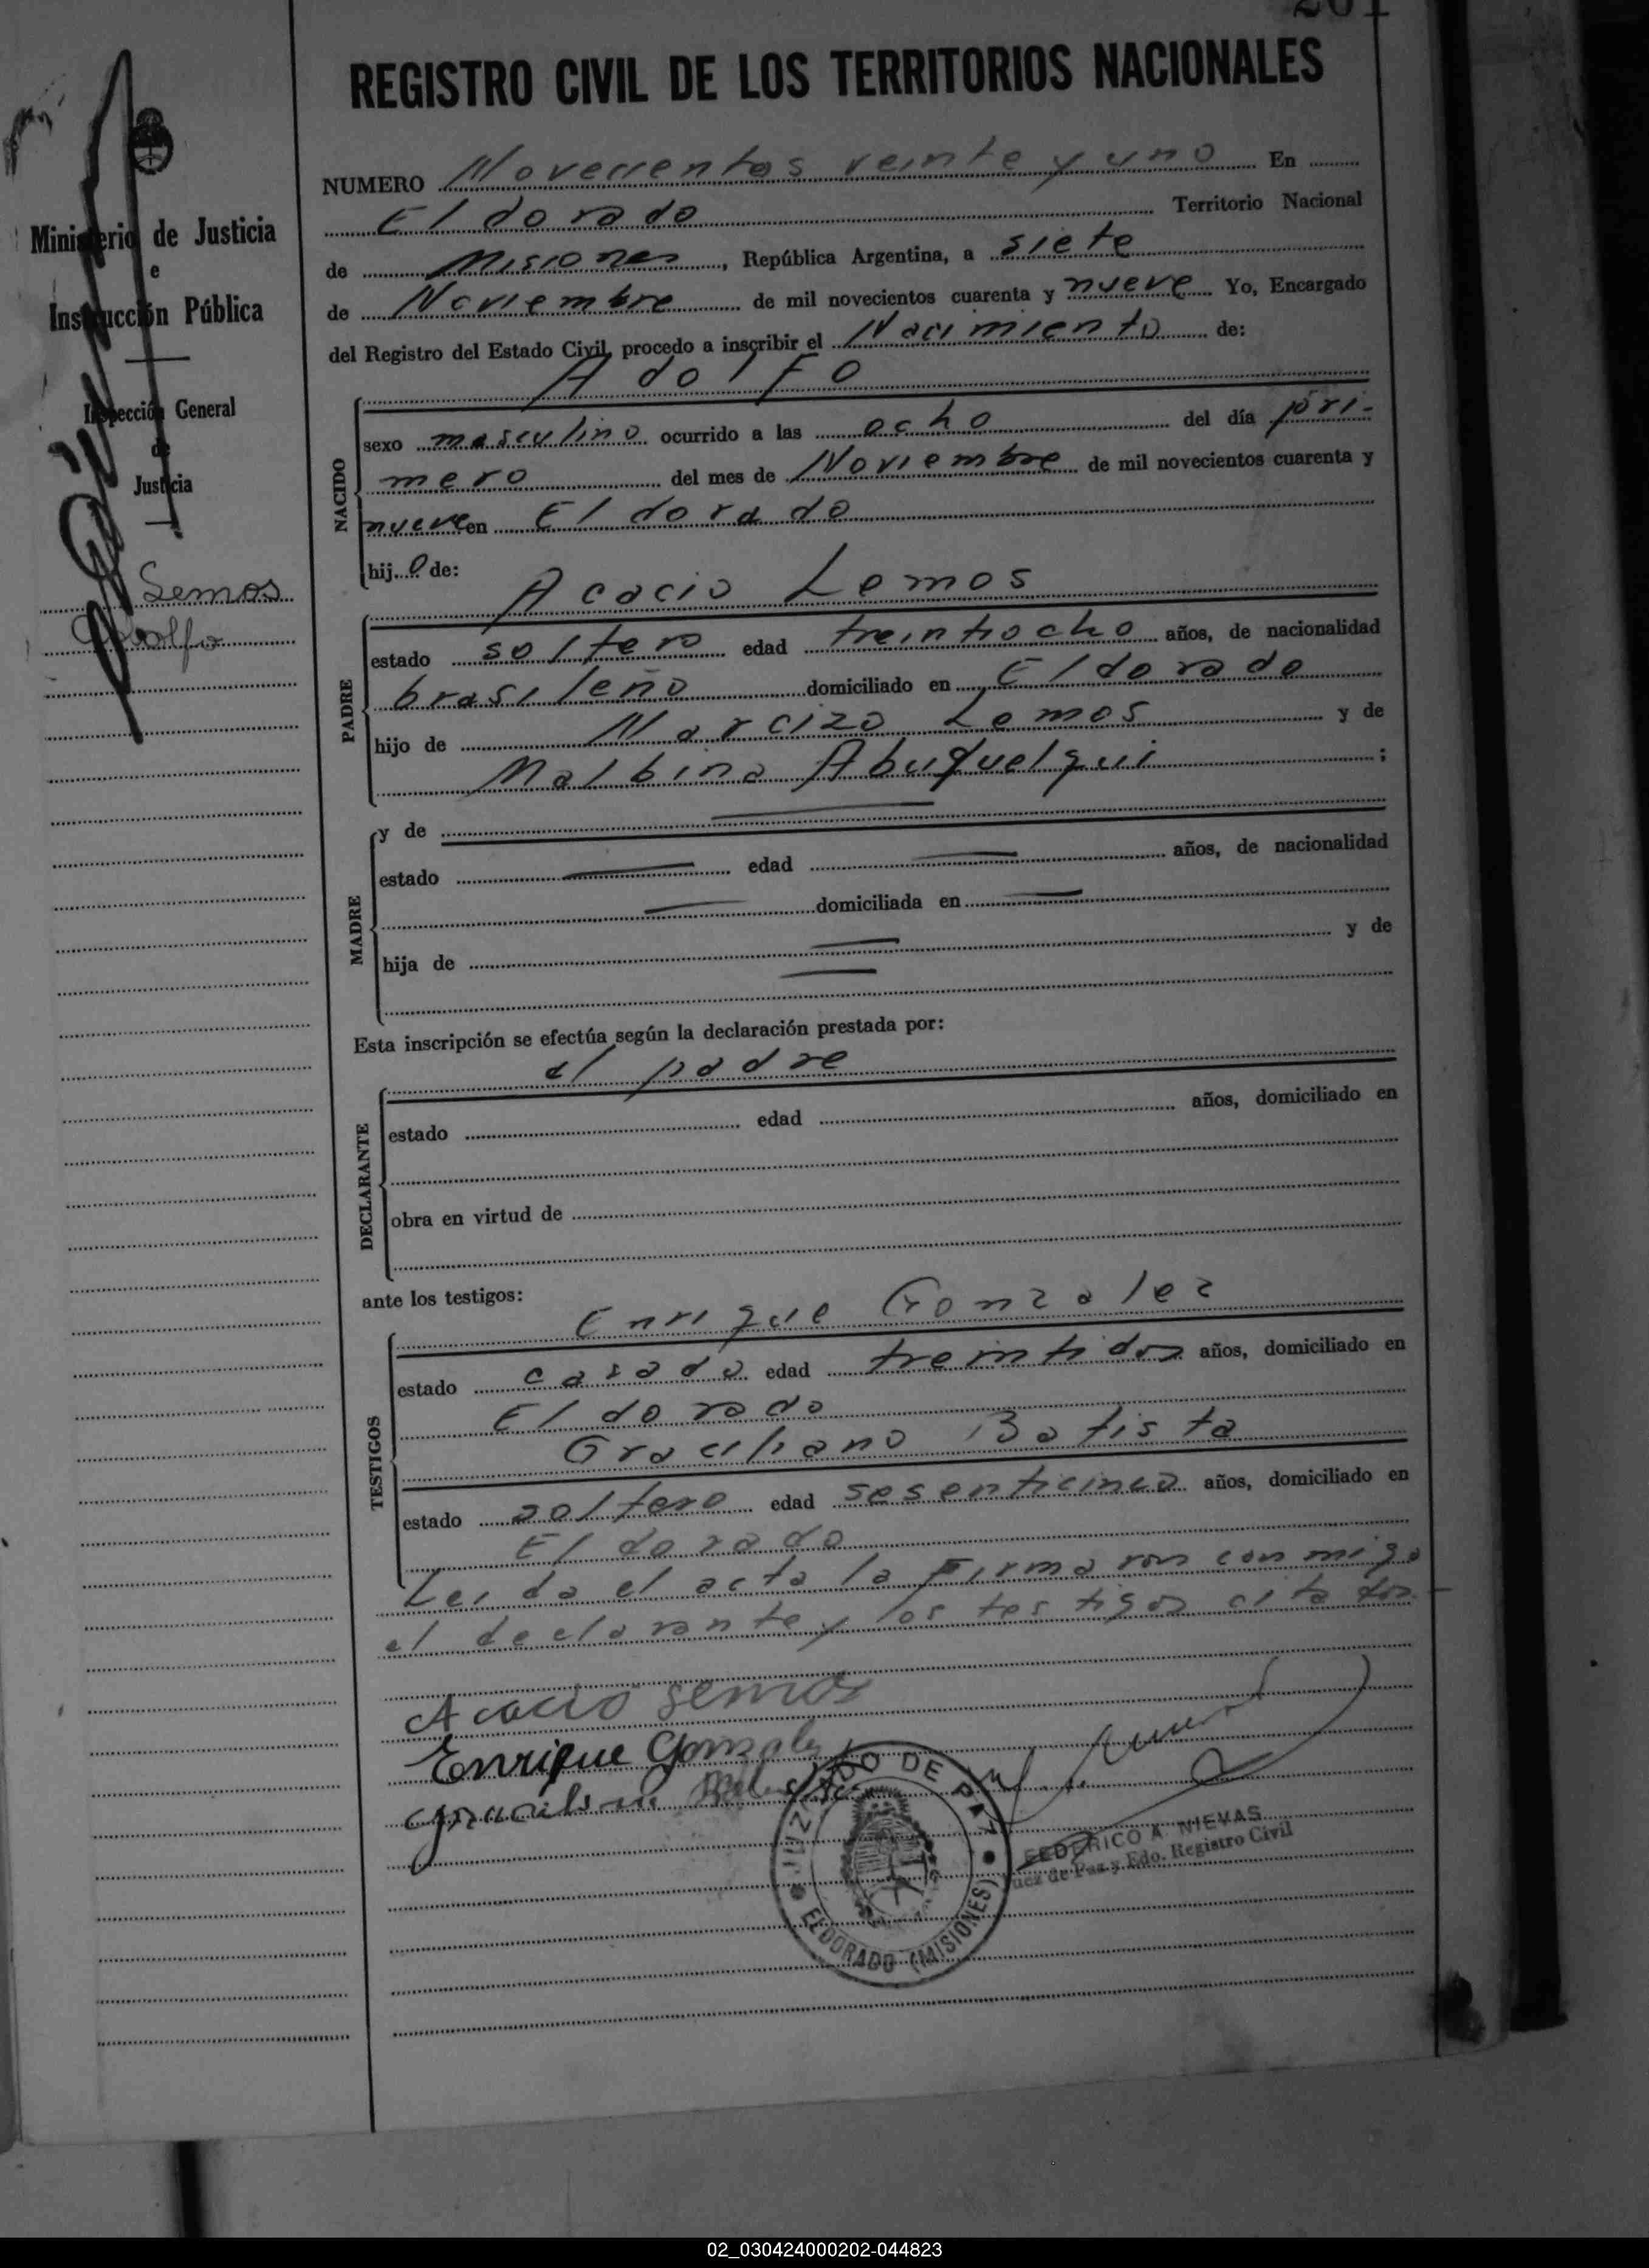 201
REGISTRO CIVIL DE LOS TERRITORIOS NACIONALES
Ministerio de Justicia
e
Instrucción Pública
Inspección General
de
Justicia
Lemos
Adolfo
NUMERO Novecientos veinte y uno En
Eldorado Territorio Nacional
de Misiones, República Argentina, a siete
de Noviembre de mil novecientos cuarenta y nueve Yo, Encargado
del Registro del Estado Civil, procedo a inscribir el Nacimiento de:
Adolfo
NACIDO
sexo masculino ocurrido a las ocho del día pri-
mero del mes de Noviembre de mil novecientos cuarenta y
nueve en Eldorado
hijo de:
Acacio Lemos
PADRE
estado soltero edad treintiocho años, de nacionalidad
brasileño domiciliado en Eldorado
hijo de Narcizo Lemos y de
Malbina Abuquelqui;
MADRE
y de
estado edad años, de nacionalidad
domiciliada en
hija de y de
Esta inscripción se efectúa según la declaración prestada por:
el padre
DECLARANTE
estado edad años, domiciliado en
obra en virtud de
ante los testigos:
Enrique Gonzalez
TESTIGOS
estado casado edad treintidos años, domiciliado en
Eldorado
Graciliano Batista
estado soltero edad sesenticinco años, domiciliado en
Eldorado
Leida el acta la firmaron conmigo
el declarante y los testigos citados.
Acacio Lemos
Enrique Gonzalez
JUZGADO DE PAZ
ELDORADO (MISIONES)
FEDERICO A. NIEVAS
Juez de Paz y Edo. Registro Civil
02_030424000202-044823